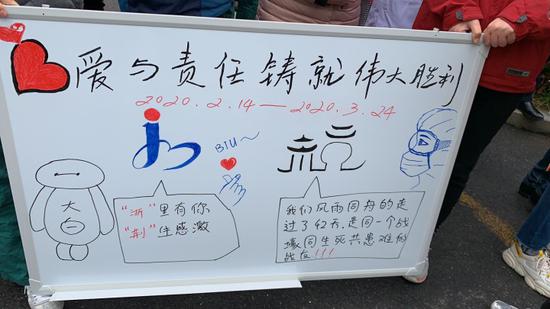 爱与责任铸就伟大胜利
2020.2.14——2020.3.24
BIU~
大白
"浙"里有你
"荆"生感激
我们风雨同舟的走
过了42天,是同一个战
壕同生死共患难的
战友!!!